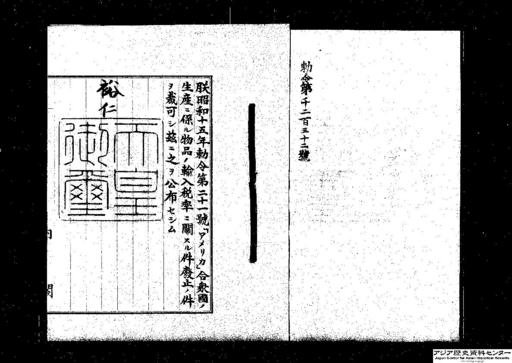 勅令第千二百三十二號
朕昭和十五年勅令第二十一號「アメリカ」合衆國ノ
生産ニ係ル物品ノ輸入税率ニ關スル件廢止ノ件
ヲ裁可シ茲ニ之ヲ公布セシム
裕仁
天皇
御璽
内 閣
アジア歴史資料センター
Japan Center for Asian Historical Records